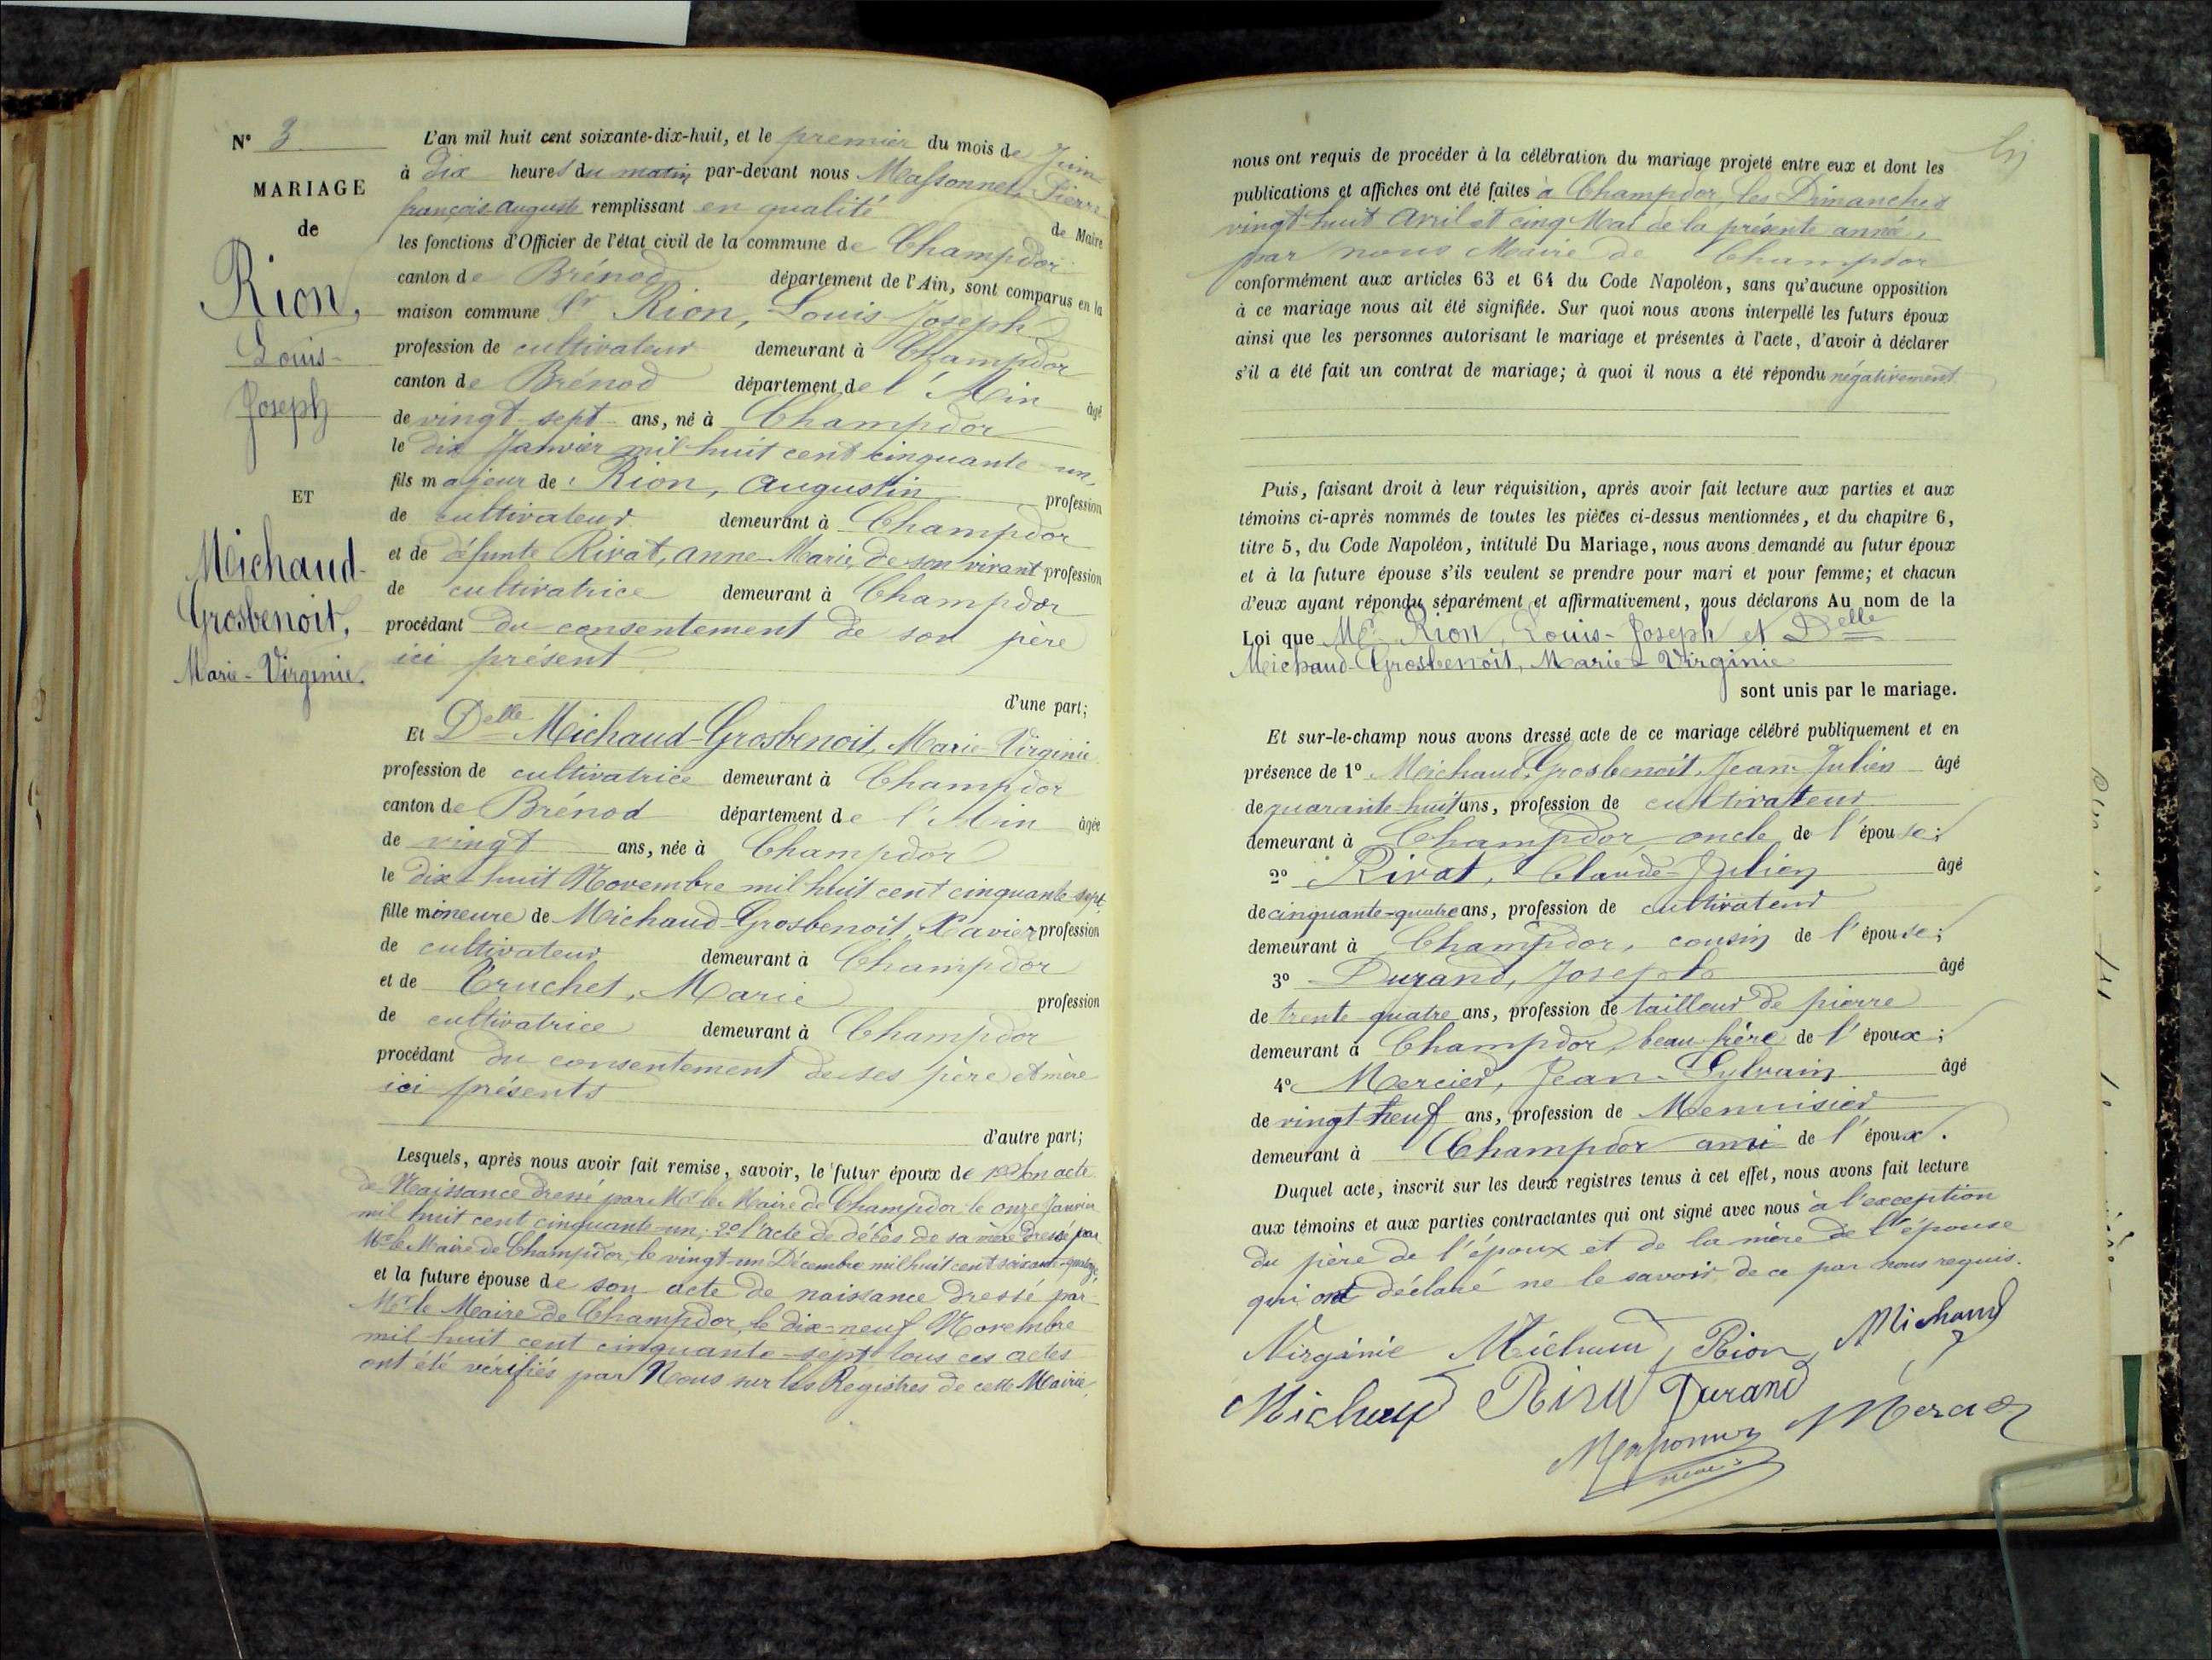 N° 3
MARIAGE
de
Rion,
Louis-
Joseph
ET
Michaud-
Grosbenoit,
Marie-Virginie.
L'an mil huit cent soixante-dix-huit, et le premier du mois de Juin
à dix heures du matin par-devant nous Massonnet, Pierre
françois auguste remplissant en qualité de Maire
les fonctions d'Officier de l'état civil de la commune de Champdor
canton de Brénod département de l'Ain, sont comparus en la
maison commune Sr Rion, Louis-Joseph
profession de cultivateur demeurant à Champdor
canton de Brénod département de l'Ain âgé
de vingt-sept ans, né à Champdor
le dix Janvier mil huit cent cinquante-un,
fils majeur de Rion, Augustin profession
de cultivateur demeurant à Champdor
et de défunte Rivat, anne-Marie, de son vivant profession
de cultivatrice demeurant à Champdor
procédant du consentement de son père
ici présent
d'une part;
Et Delle Michaud-Grosbenoit, Marie-Virginie
profession de cultivatrice demeurant à Champdor
canton de Brénod département de l'Ain âgée
de vingt ans, née à Champdor
le dix-huit Novembre mil huit cent cinquante-sept,
fille mineure de Michaud-Grosbenoit, Xavier profession
de cultivateur demeurant à Champdor
et de Truchet, Marie profession
de cultivatrice demeurant à Champdor
procédant du consentement de ses père et mère
ici présents
d'autre part;
Lesquels, après nous avoir fait remise, savoir, le futur époux de 1° son acte
de Naissance dressé par Mr le Maire de Champdor le onze Janvier
mil huit cent cinquante-un; 2° l'acte de décès de sa mère dressé par
Mr le Maire de Champdor, le vingt-un Décembre mil huit cent soixante-quatorze,
et la future épouse de son acte de naissance dressé par
Mr le Maire de Champdor, le dix-neuf Novembre
mil huit cent cinquante-sept tous ces actes
ont été vérifiés par Nous sur les Régistres de cette Mairie,
nous ont requis de procéder à la célébration du mariage projeté entre eux et dont les
publications et affiches ont été faites à Champdor, les Dimanches
vingt-huit Avril et cinq Mai de la présente année,
par nous Maire de Champdor
conformément aux articles 63 et 64 du Code Napoléon, sans qu'aucune opposition
à ce mariage nous ait été signifiée. Sur quoi nous avons interpellé les futurs époux
ainsi que les personnes autorisant le mariage et présentes à l'acte, d'avoir à déclarer
s'il a été fait un contrat de mariage; à quoi il nous a été répondu négativement
Puis, faisant droit à leur réquisition, après avoir fait lecture aux parties et aux
témoins ci-après nommés de toutes les pièces ci-dessus mentionnées, et du chapitre 6,
titre 5, du Code Napoléon, intitulé Du Mariage, nous avons demandé au futur époux
et à la future épouse s'ils veulent se prendre pour mari et pour femme; et chacun
d'eux ayant répondu séparément et affirmativement, nous déclarons Au nom de la
Loi que Mr Rion, Louis-Joseph et Delle
Michaud-Grosbenoit, Marie-Virginie
sont unis par le mariage.
Et sur-le-champ nous avons dressé acte de ce mariage célébré publiquement et en
présence de 1° Michaud-Grosbenoit, Jean-Julien âgé
de quarante-huit ans, profession de cultivateur
demeurant à Champdor, oncle de l'épouse;
2° Rivat, Claude-Julien âgé
de cinquante-quatre ans, profession de cultivateur
demeurant à Champdor, cousin de l'épouse;
3° Durand, Joseph âgé
de trente-quatre ans, profession de tailleur de pierre
demeurant à Champdor, beau-frère de l'époux;
4° Mercier, Jean-Sylvain âgé
de vingt-neuf ans, profession de Menuisier
demeurant à Champdor ami de l'époux.
Duquel acte, inscrit sur les deux registres tenus à cet effet, nous avons fait lecture
aux témoins et aux parties contractantes qui ont signé avec nous à l'exception
du père de l'époux et de la mère de l'épouse
qui ont déclaré ne le savoir de ce par nous requis.
Virginie Michaud Rion Michaud
Michaud Rivat Durand
Massonnet Mercier